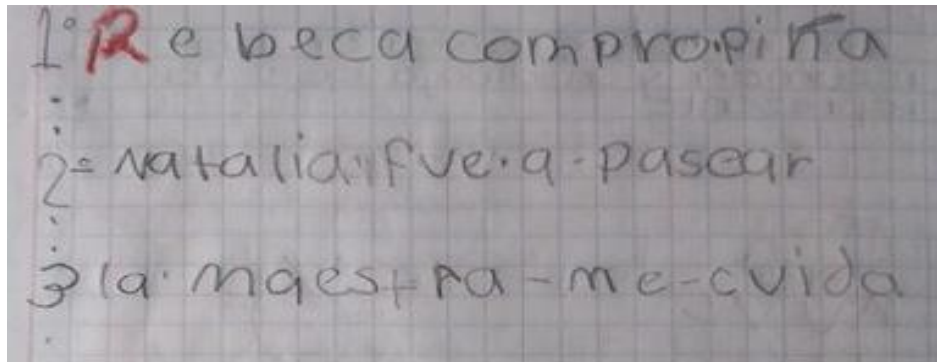 1° Rebeca compro.piña
2= Natalia.fue.a.pasear
3 la.maestra-me-cuida